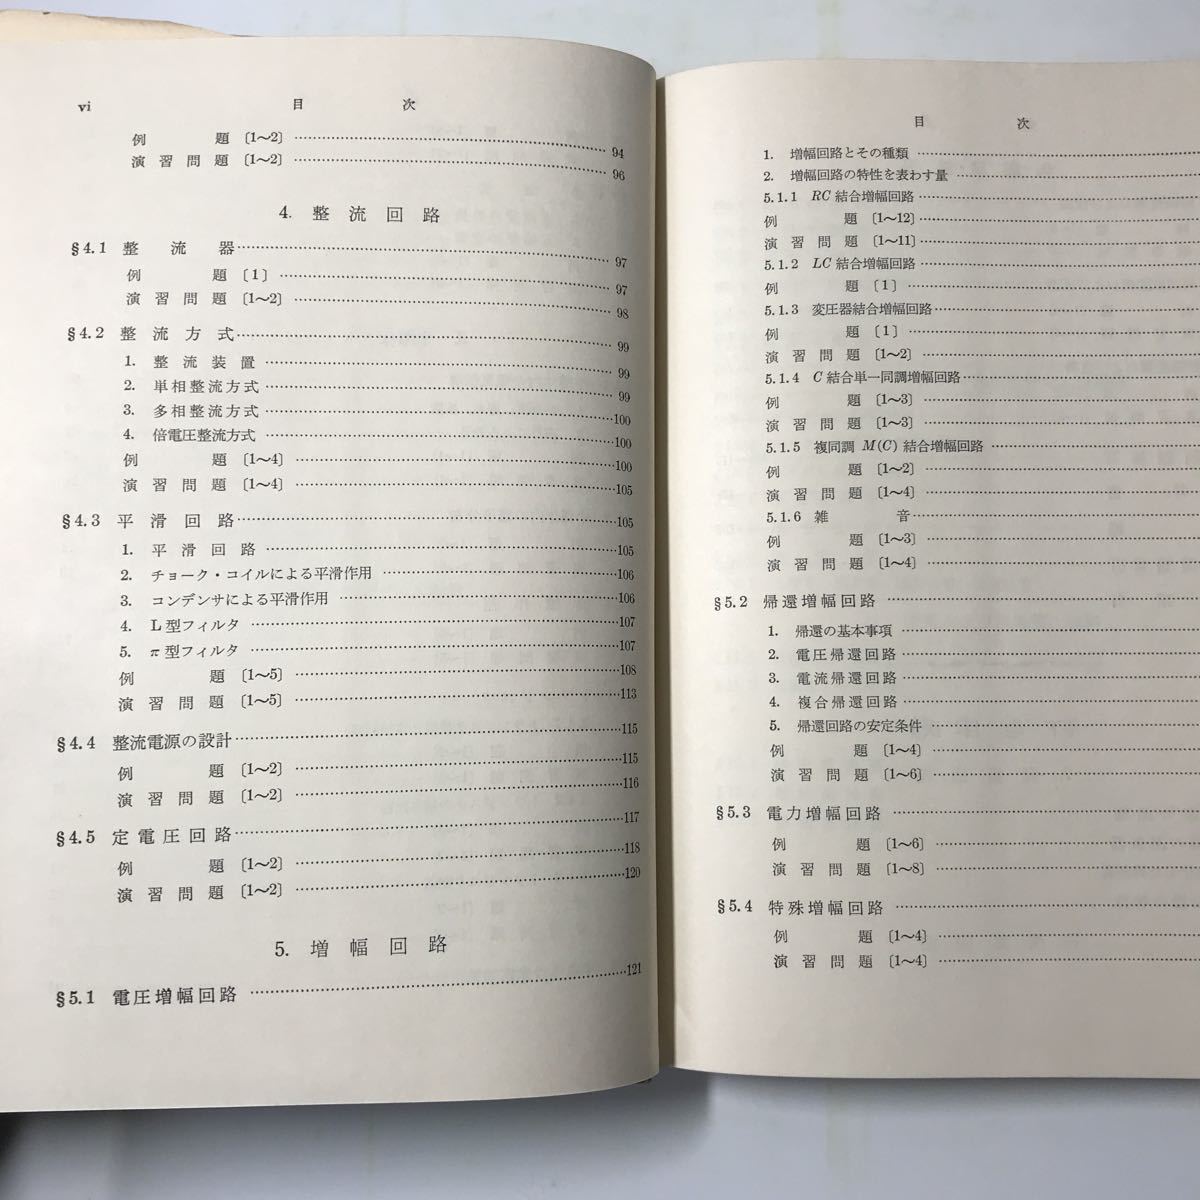 vi 目次
例題〔1〜2〕 94
演習問題〔1〜2〕 96
4. 整流回路
§4.1 整流器 97
例題〔1〕 97
演習問題〔1〜2〕 98
§4.2 整流方式 99
1. 整流装置 99
2. 単相整流方式 99
3. 多相整流方式 100
4. 倍電圧整流方式 100
例題〔1〜4〕 100
演習問題〔1〜4〕 105
§4.3 平滑回路 105
1. 平滑回路 105
2. チョーク・コイルによる平滑作用 106
3. コンデンサによる平滑作用 106
4. L型フィルタ 107
5. π型フィルタ 107
例題〔1〜5〕 108
演習問題〔1〜5〕 113
§4.4 整流電源の設計 115
例題〔1〜2〕 115
演習問題〔1〜2〕 116
§4.5 定電圧回路 117
例題〔1〜2〕 118
演習問題〔1〜2〕 120
5. 増幅回路
§5.1 電圧増幅回路 121
目次
1. 増幅回路とその種類
2. 増幅回路の特性を表わす量
5.1.1 RC結合増幅回路
例題〔1〜12〕
演習問題〔1〜11〕
5.1.2 LC結合増幅回路
例題〔1〕
5.1.3 変圧器結合増幅回路
例題〔1〕
演習問題〔1〜2〕
5.1.4 C結合単一同調増幅回路
例題〔1〜3〕
演習問題〔1〜3〕
5.1.5 複同調 M(C)結合増幅回路
例題〔1〜2〕
演習問題〔1〜4〕
5.1.6 雑音
例題〔1〜3〕
演習問題〔1〜4〕
§5.2 帰還増幅回路
1. 帰還の基本事項
2. 電圧帰還回路
3. 電流帰還回路
4. 複合帰還回路
5. 帰還回路の安定条件
例題〔1〜4〕
演習問題〔1〜6〕
§5.3 電力増幅回路
例題〔1〜6〕
演習問題〔1〜8〕
§5.4 特殊増幅回路
例題〔1〜4〕
演習問題〔1〜4〕